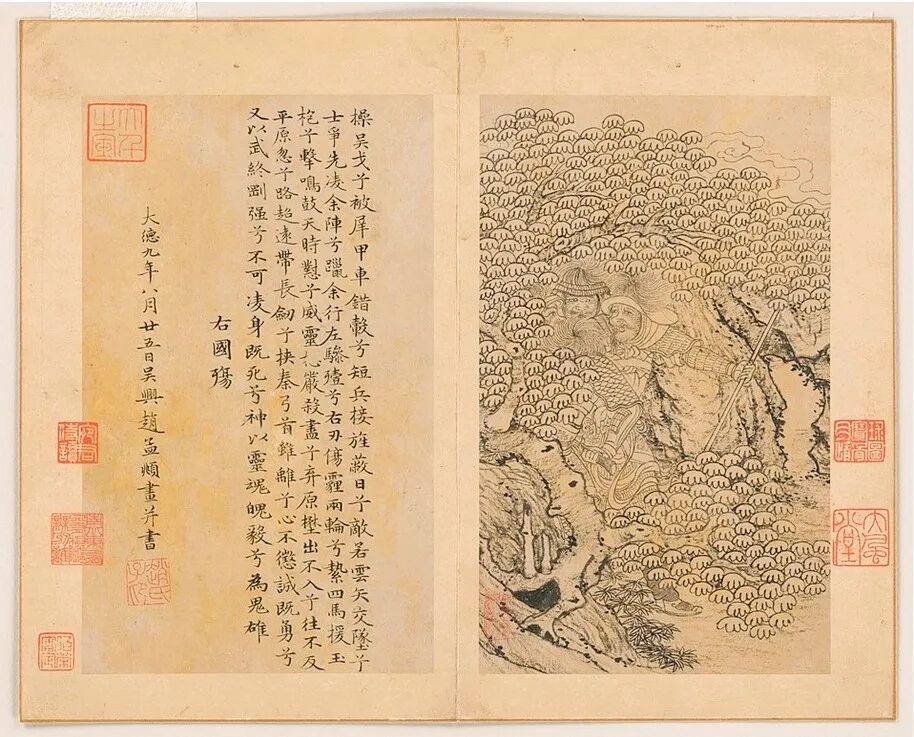 操吴戈兮被犀甲車錯轂兮短兵接旌蔽日兮敵若雲矢交墜兮
士爭先凌余陣兮躐余行左驂殪兮右刃傷霾兩輪兮縶四馬援玉
枹兮擊鳴鼓天時懟兮威靈嚴殺盡兮弃原壄出不入兮往不反
平原忽兮路超遠帶長劔兮挾秦弓首雖離兮心不懲誠既勇兮
又以武終剛强兮不可凌身既死兮神以靈魂魄毅兮為鬼雄
右國殤
大德九年八月廿五日吴興趙孟頫畫并書
趙氏子昂
球圖寶骨肉情
大風堂